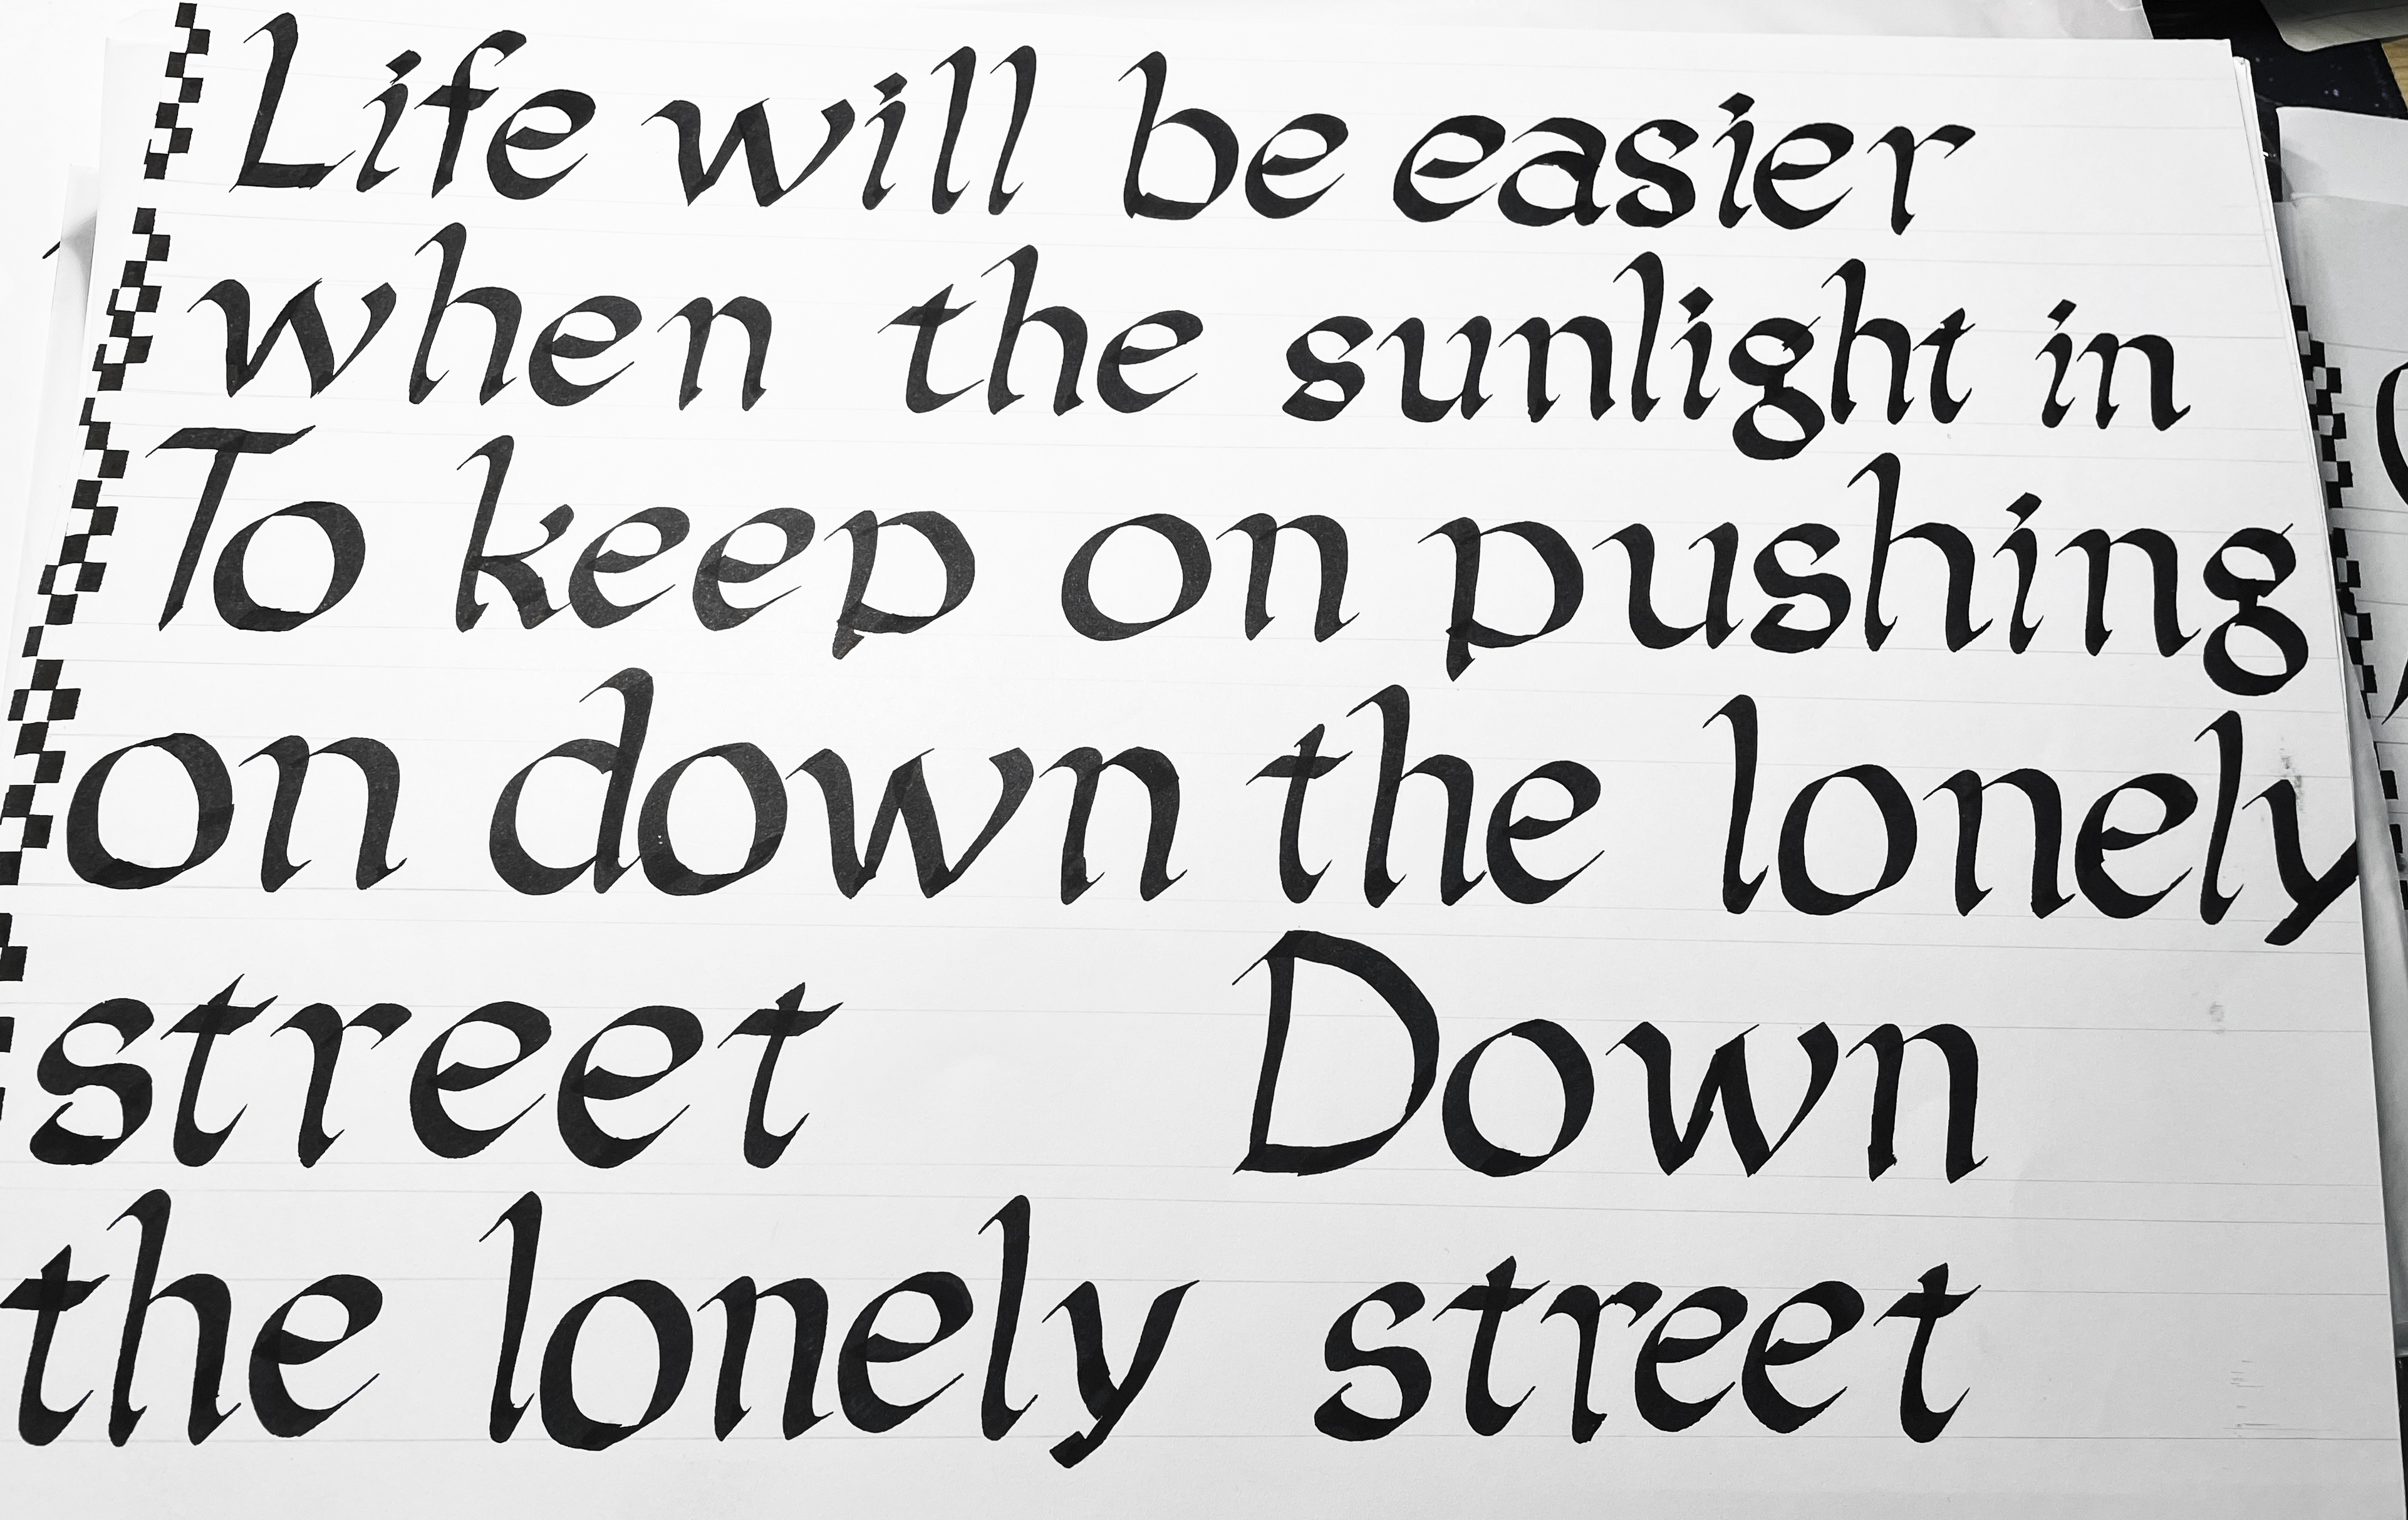 Life will be easier
when the sunlight in
To keep on pushing
on down the lonely
street Down
the lonely street